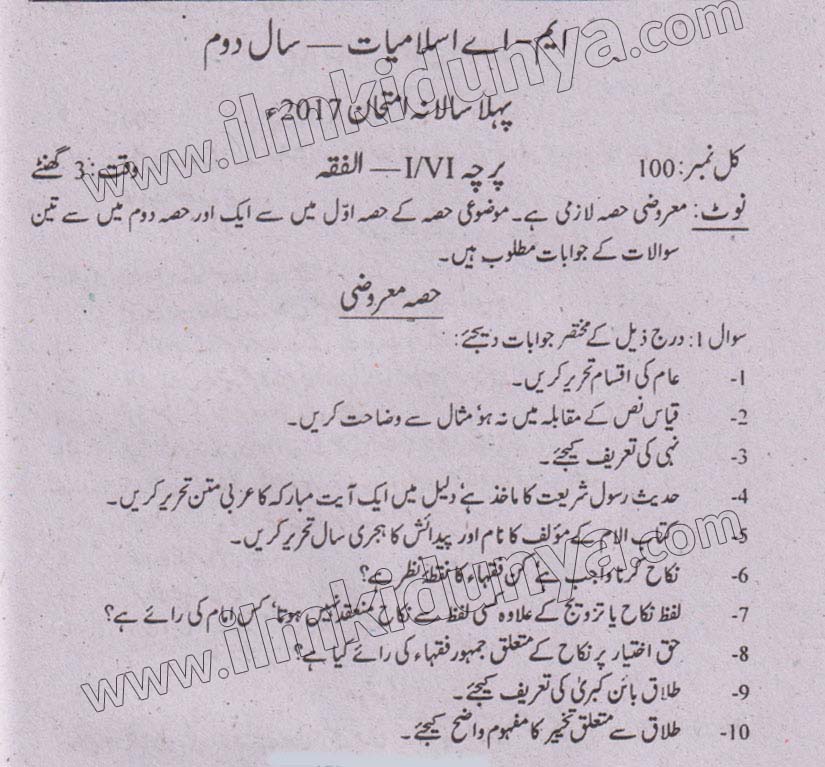 ایم-اے اسلامیات — سال دوم
پہلا سالانہ امتحان 2017ء
کل نمبر: 100 پرچہ I/VI — الفقہ وقت: 3 گھنٹے
نوٹ: معروضی حصہ لازمی ہے۔ موضوعی حصہ کے حصہ اوّل میں سے ایک اور حصہ دوم میں سے تین
سوالات کے جوابات مطلوب ہیں۔
حصہ معروضی
سوال 1: درج ذیل کے مختصر جوابات دیجئے:
1- عام کی اقسام تحریر کریں۔
2- قیاس نص کے مقابلہ میں نہ ہو' مثال سے وضاحت کریں۔
3- نہی کی تعریف کیجئے۔
4- حدیث رسول شریعت کا ماخذ ہے' دلیل میں ایک آیت مبارکہ کا عربی متن تحریر کریں۔
5- کتاب الام کے مؤلف کا نام اور پیدائش کا ہجری سال تحریر کریں۔
6- نکاح کرنا واجب ہے' کن فقہاء کا نقطۂ نظر ہے؟
7- لفظ نکاح یا تزویج کے علاوہ کسی لفظ سے نکاح منعقد نہیں ہوتا' کس امام کی رائے ہے؟
8- حق اختیار پر نکاح کے متعلق جمہور فقہاء کی رائے کیا ہے؟
9- طلاق بائن کبریٰ کی تعریف کیجئے۔
10- طلاق سے متعلق تخییر کا مفہوم واضح کیجئے۔
www.ilmkidunya.com
www.ilmkidunya.com